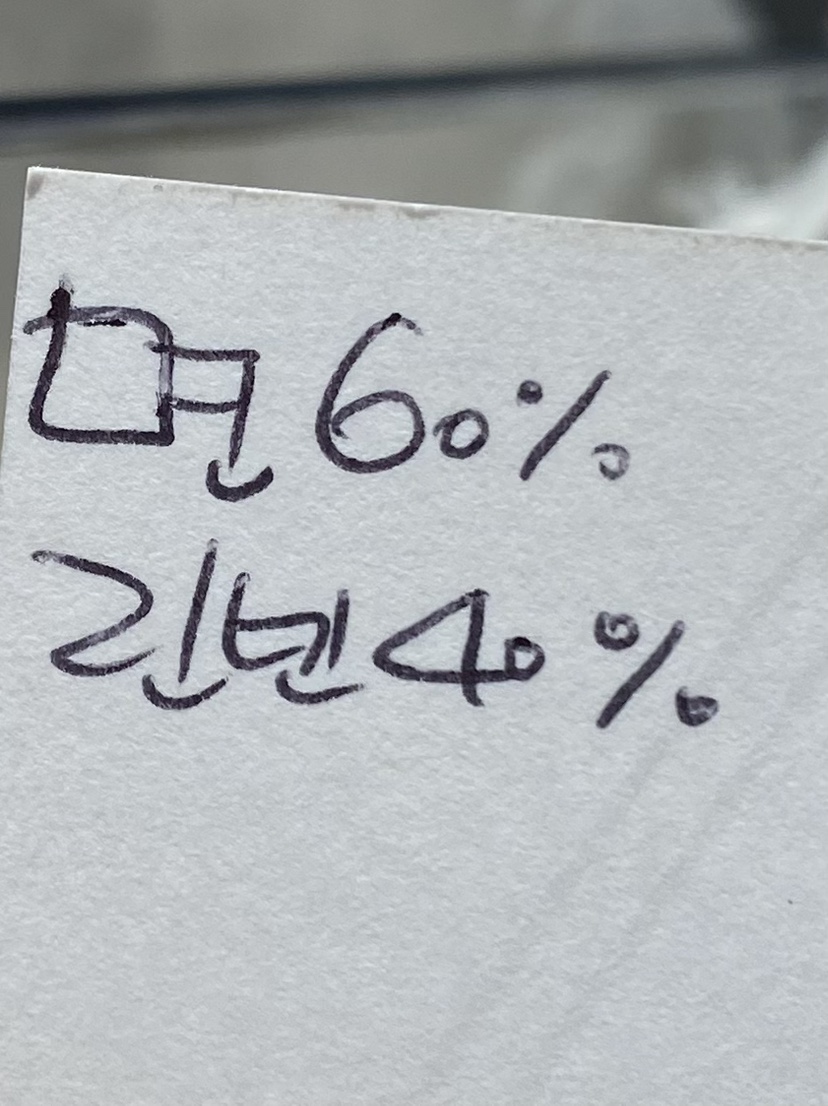 면 60%
린넨 40%